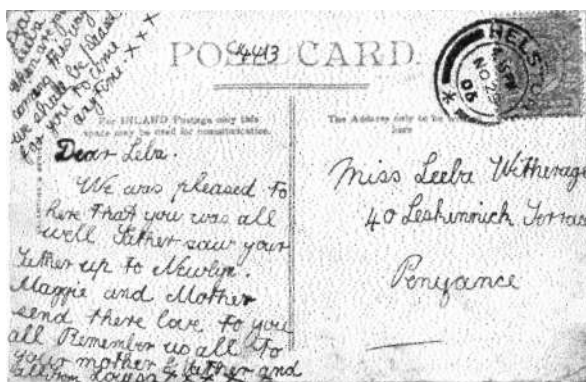 Dear
Leba
when are you
coming this way
we shall be pleased
for you to come
any time. x x x
POST CARD.
C4413
HELSTON
4.15PM
NO 29
06
For INLAND Postage only this
space may be used for communication.
The Address only to be
here
Dear Leba.
We was pleased to
here that you was all
well Father saw your
Father up to Newlyn.
Maggie and Mother
send there love to you
all Remember us all to
your mother & father and
all from Louisa x x x x
Miss Leeba Witherage
40 Leskinnick Terrace
Penzance